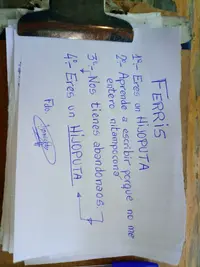 FERRIS
1º- Eres un HIJOPUTA
2º- Aprende a escribir porque no me
entero nitampocona
3º-, Nos tienes abandonaos.
4º- Eres un HIJOPUTA
Fdo.